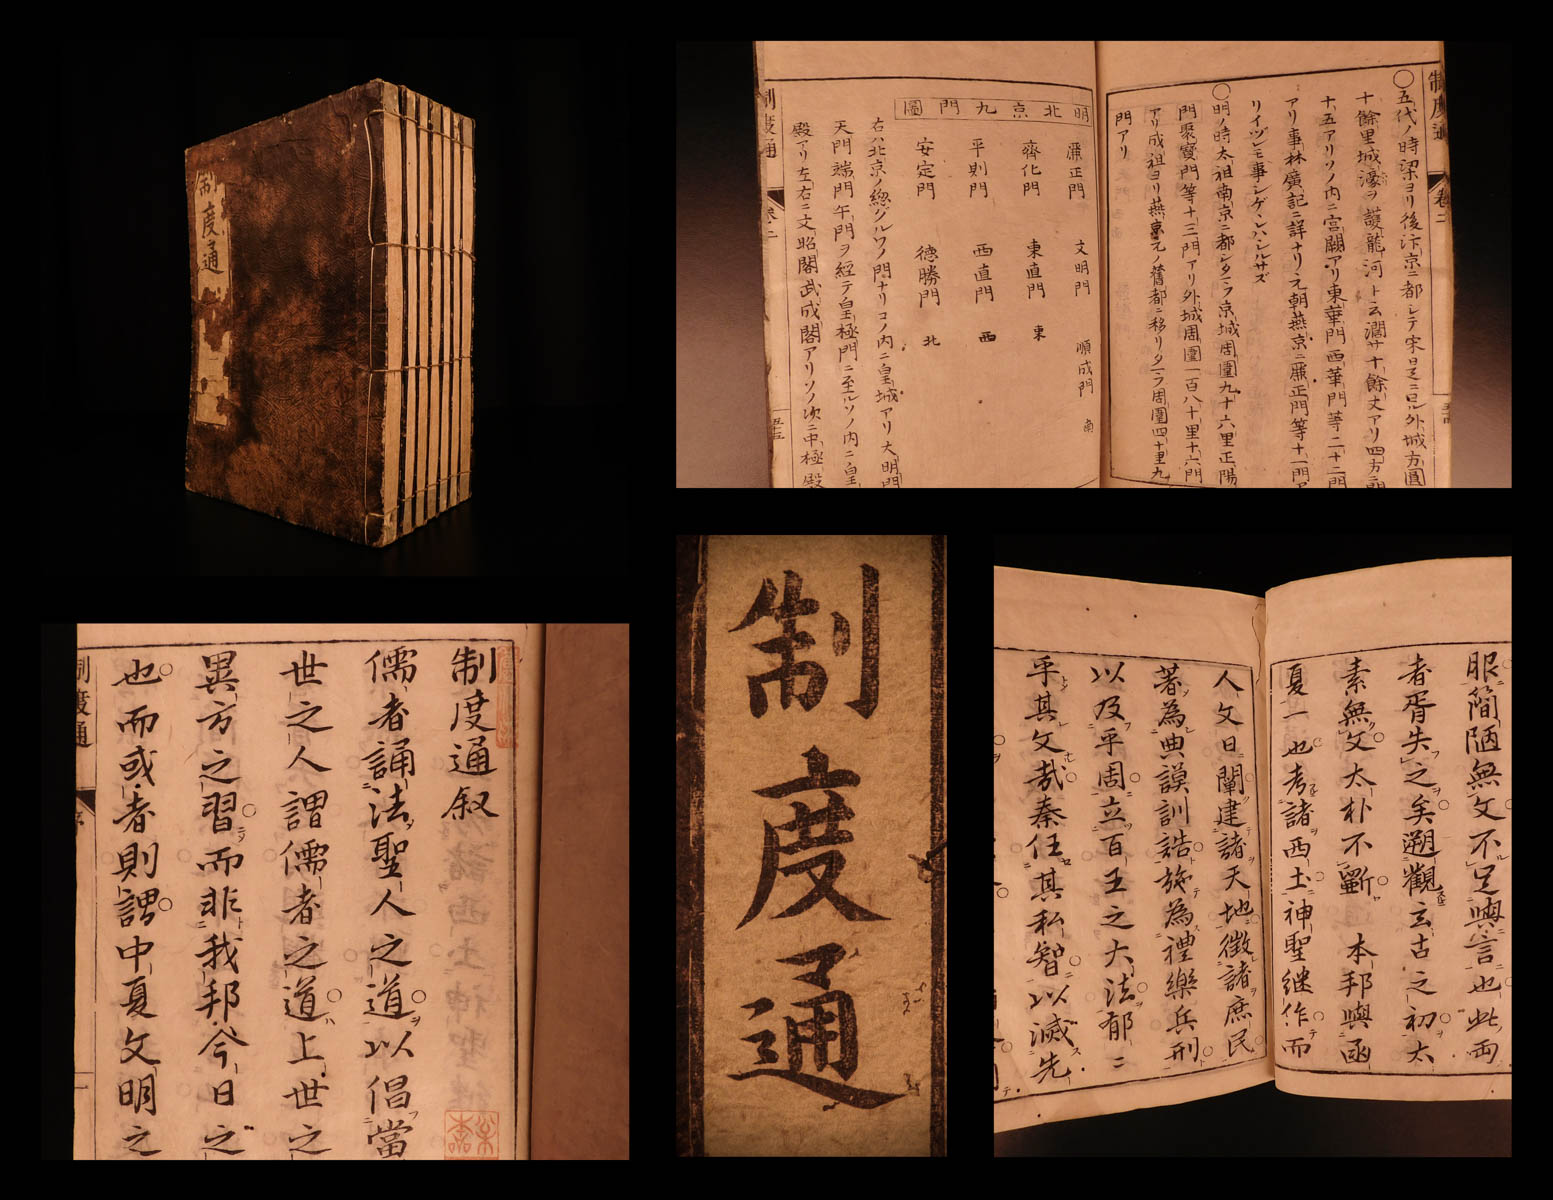 制度通
制度通
卷二
○五代ノ時梁ヨリ後汴京ニ都シテ宋
十餘里城濠ヲ護龍河ト云濶サ十餘丈アリ四方ニ門
十五アリソノ内ニ宮闕アリ東華門西華門等二十二門
アリ事林廣記ニ詳ナリ元朝燕京ニ麗正門等十一門ア
リイヅレモ事シゲケレバシルサズ
○明ノ時太祖南京ニ都シタマフ京城周圍九十六里正陽
門聚寶門等十三門アリ外城周圍一百八十里十六門
アリ成祖ヨリ燕京元ノ舊都ニ移リタマフ周圍四十里九
門アリ
明北京九門圖
麗正門 文明門 順成門 南
齊化門 東直門 東
平則門 西直門 西
安定門 德勝門 北
右ハ北京ノ總グルワノ門ナリコノ内ニ皇城アリ大明門
天門端門午門ヲ經テ皇極門ニ至ルソノ内ニ皇
殿アリ左右ニ文昭閣武成閣アリソノ次ニ中極殿
制度通
卷二
五十五
制度通叙
儒者誦法聖人之道以倡當
世之人謂儒者之道上世之
異方之習而非我邦今日之
也而或者則謂中夏文明之
制度通
序
一
制度通
服簡陋無文不足與言也此兩
者胥失之矣遡觀玄古之初太
素無文太朴不斲 本邦與函
夏一也考諸西土神聖継作而
人文日闡建諸天地徴諸庶民
著為典謨訓誥施為禮樂兵刑
以及乎周立百王之大法郁ニ
乎其文哉秦任其私智以滅先